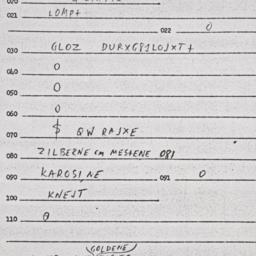 020
021 LOMPT
022 0
030 GLOZ DURXG81LOJXT+
040 0
050 0
060 0
070 $ QW RAJXE
080 ZILBERNE cm MESTENE 081
090 KAROSI,NE 091 0
100 KNEJT
110 0
GOLDENE